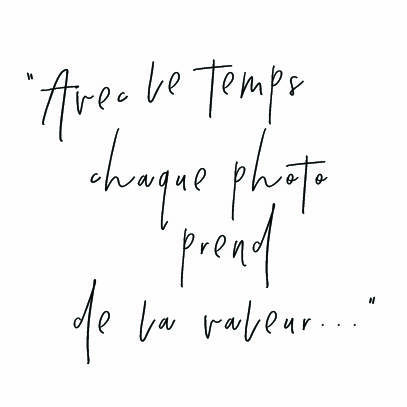 "Avec le temps
chaque photo
prend
de la valeur..."